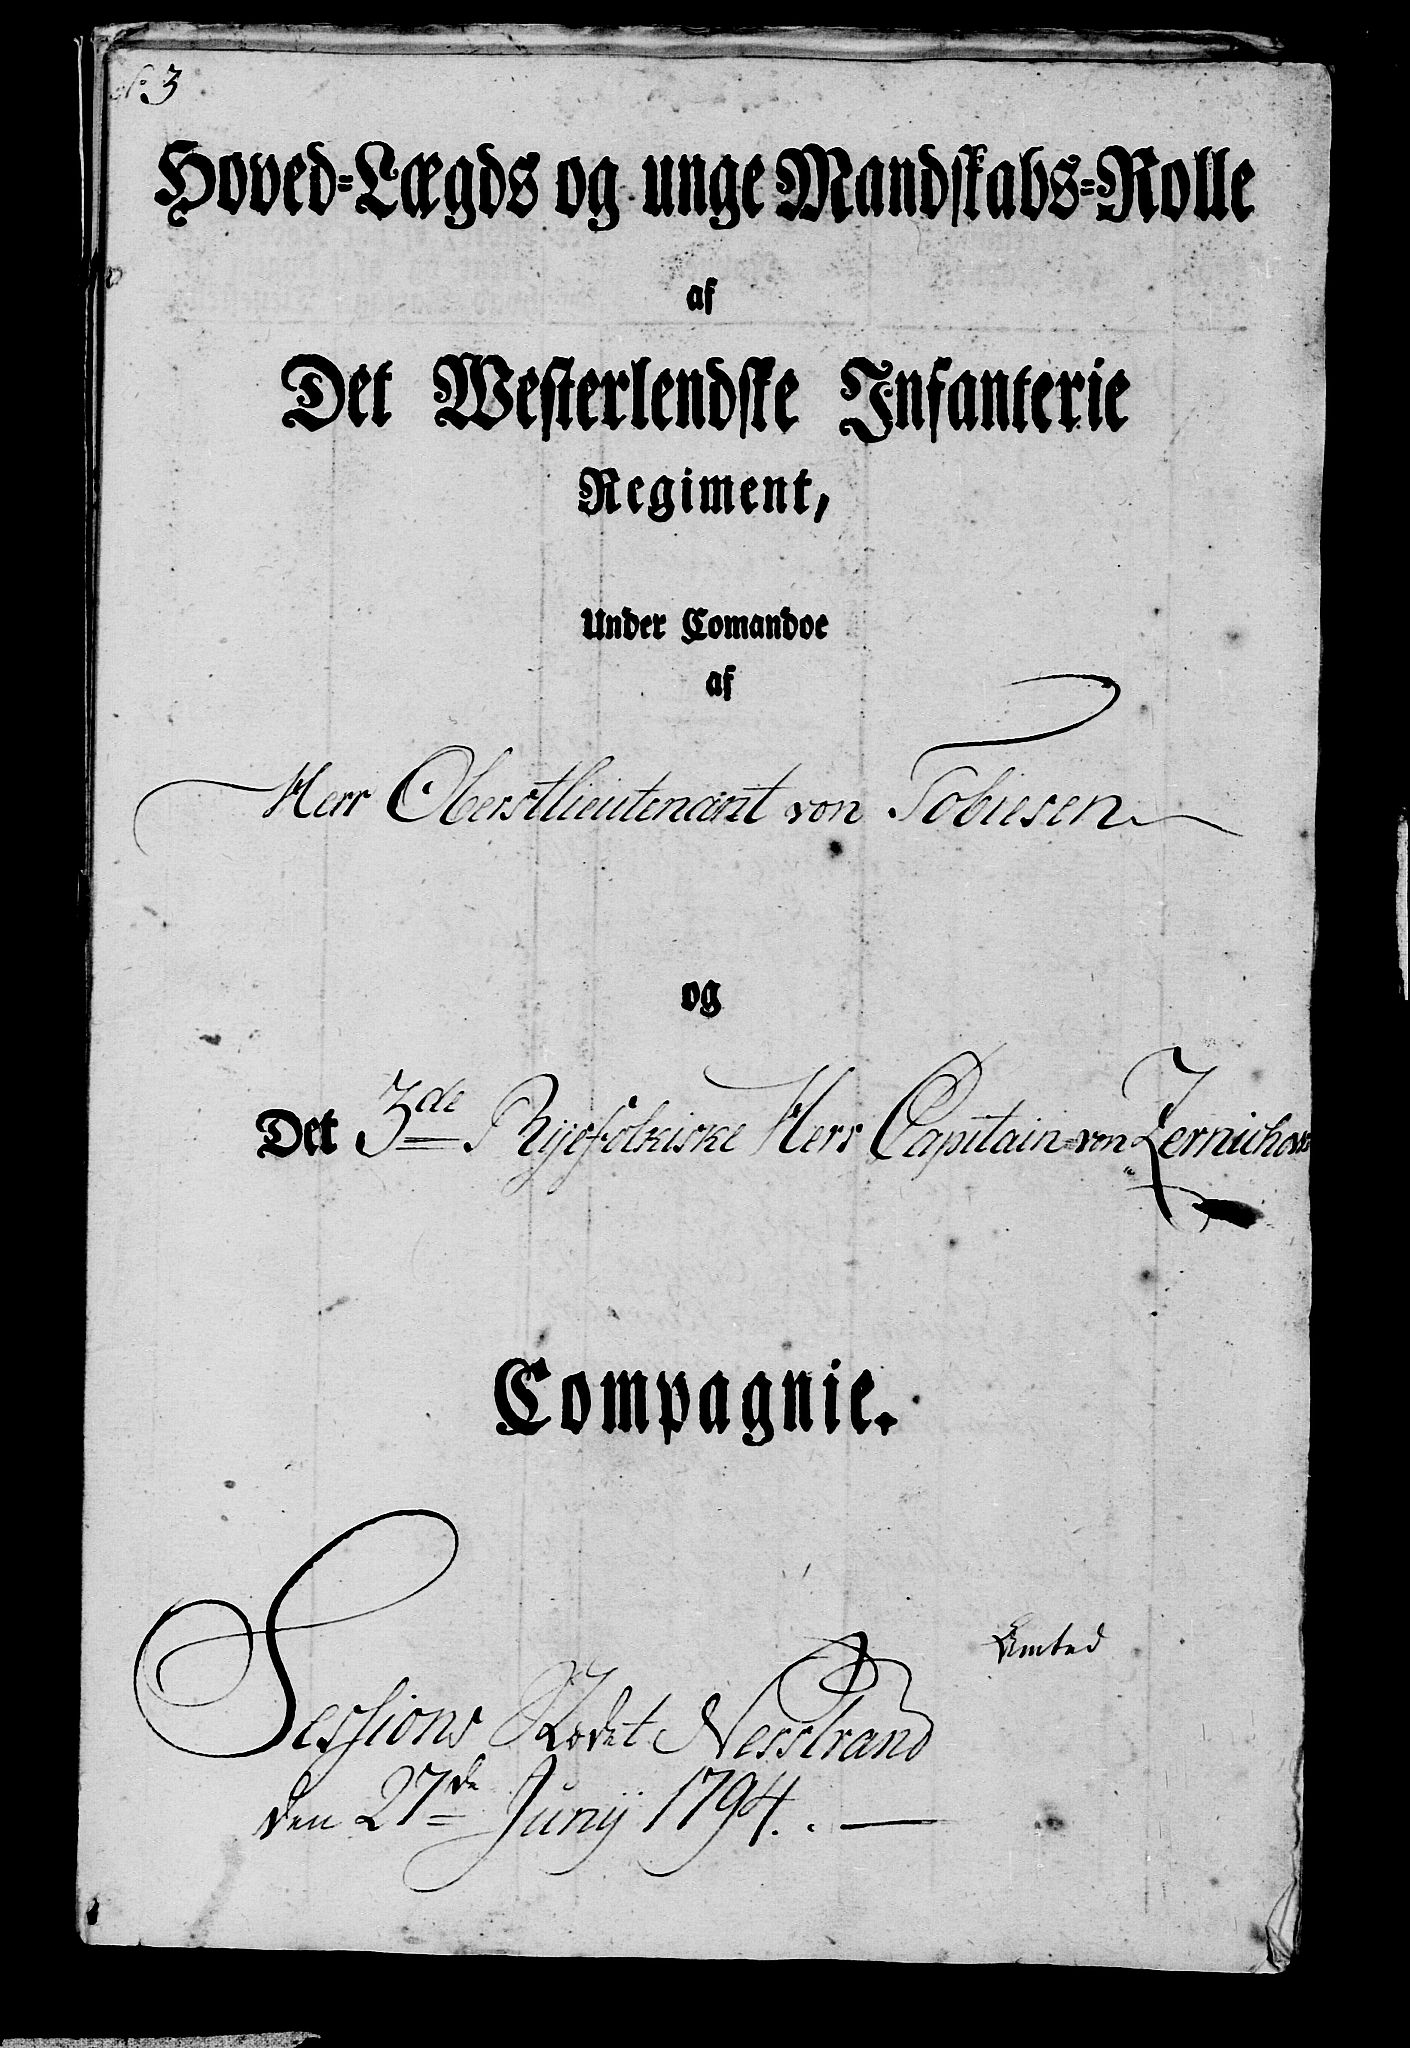 N: 3
Hoved=Lægds og unge Mandskabs=Rolle
af
Det Westerlendske Infanterie
Regiment,
Under Comandoe
af
Herr Oberstlieutenant von Tobiesen
og
Det 3de Ryefylkiske Herr Capitain von Zernichow
Compagnie.
Sessions Stædet Nesstrand
den 27de Junij 1794.